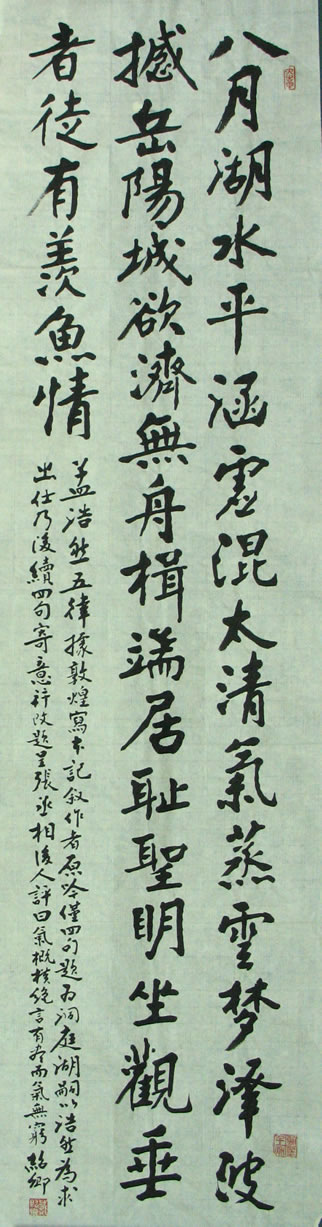 八月湖水平涵虛混太清氣蒸雲梦澤波
撼岳陽城欲濟無舟楫端居耻聖明坐觀垂
者徒有羨魚情
孟浩然五律據敦煌寫本記叙作者原吟僅四句題為洞庭湖嗣以浩然為求
出仕乃後續四句寄意并改題呈張丞相後人評曰氣概橫絶言有盡而氣無窮 紹卿